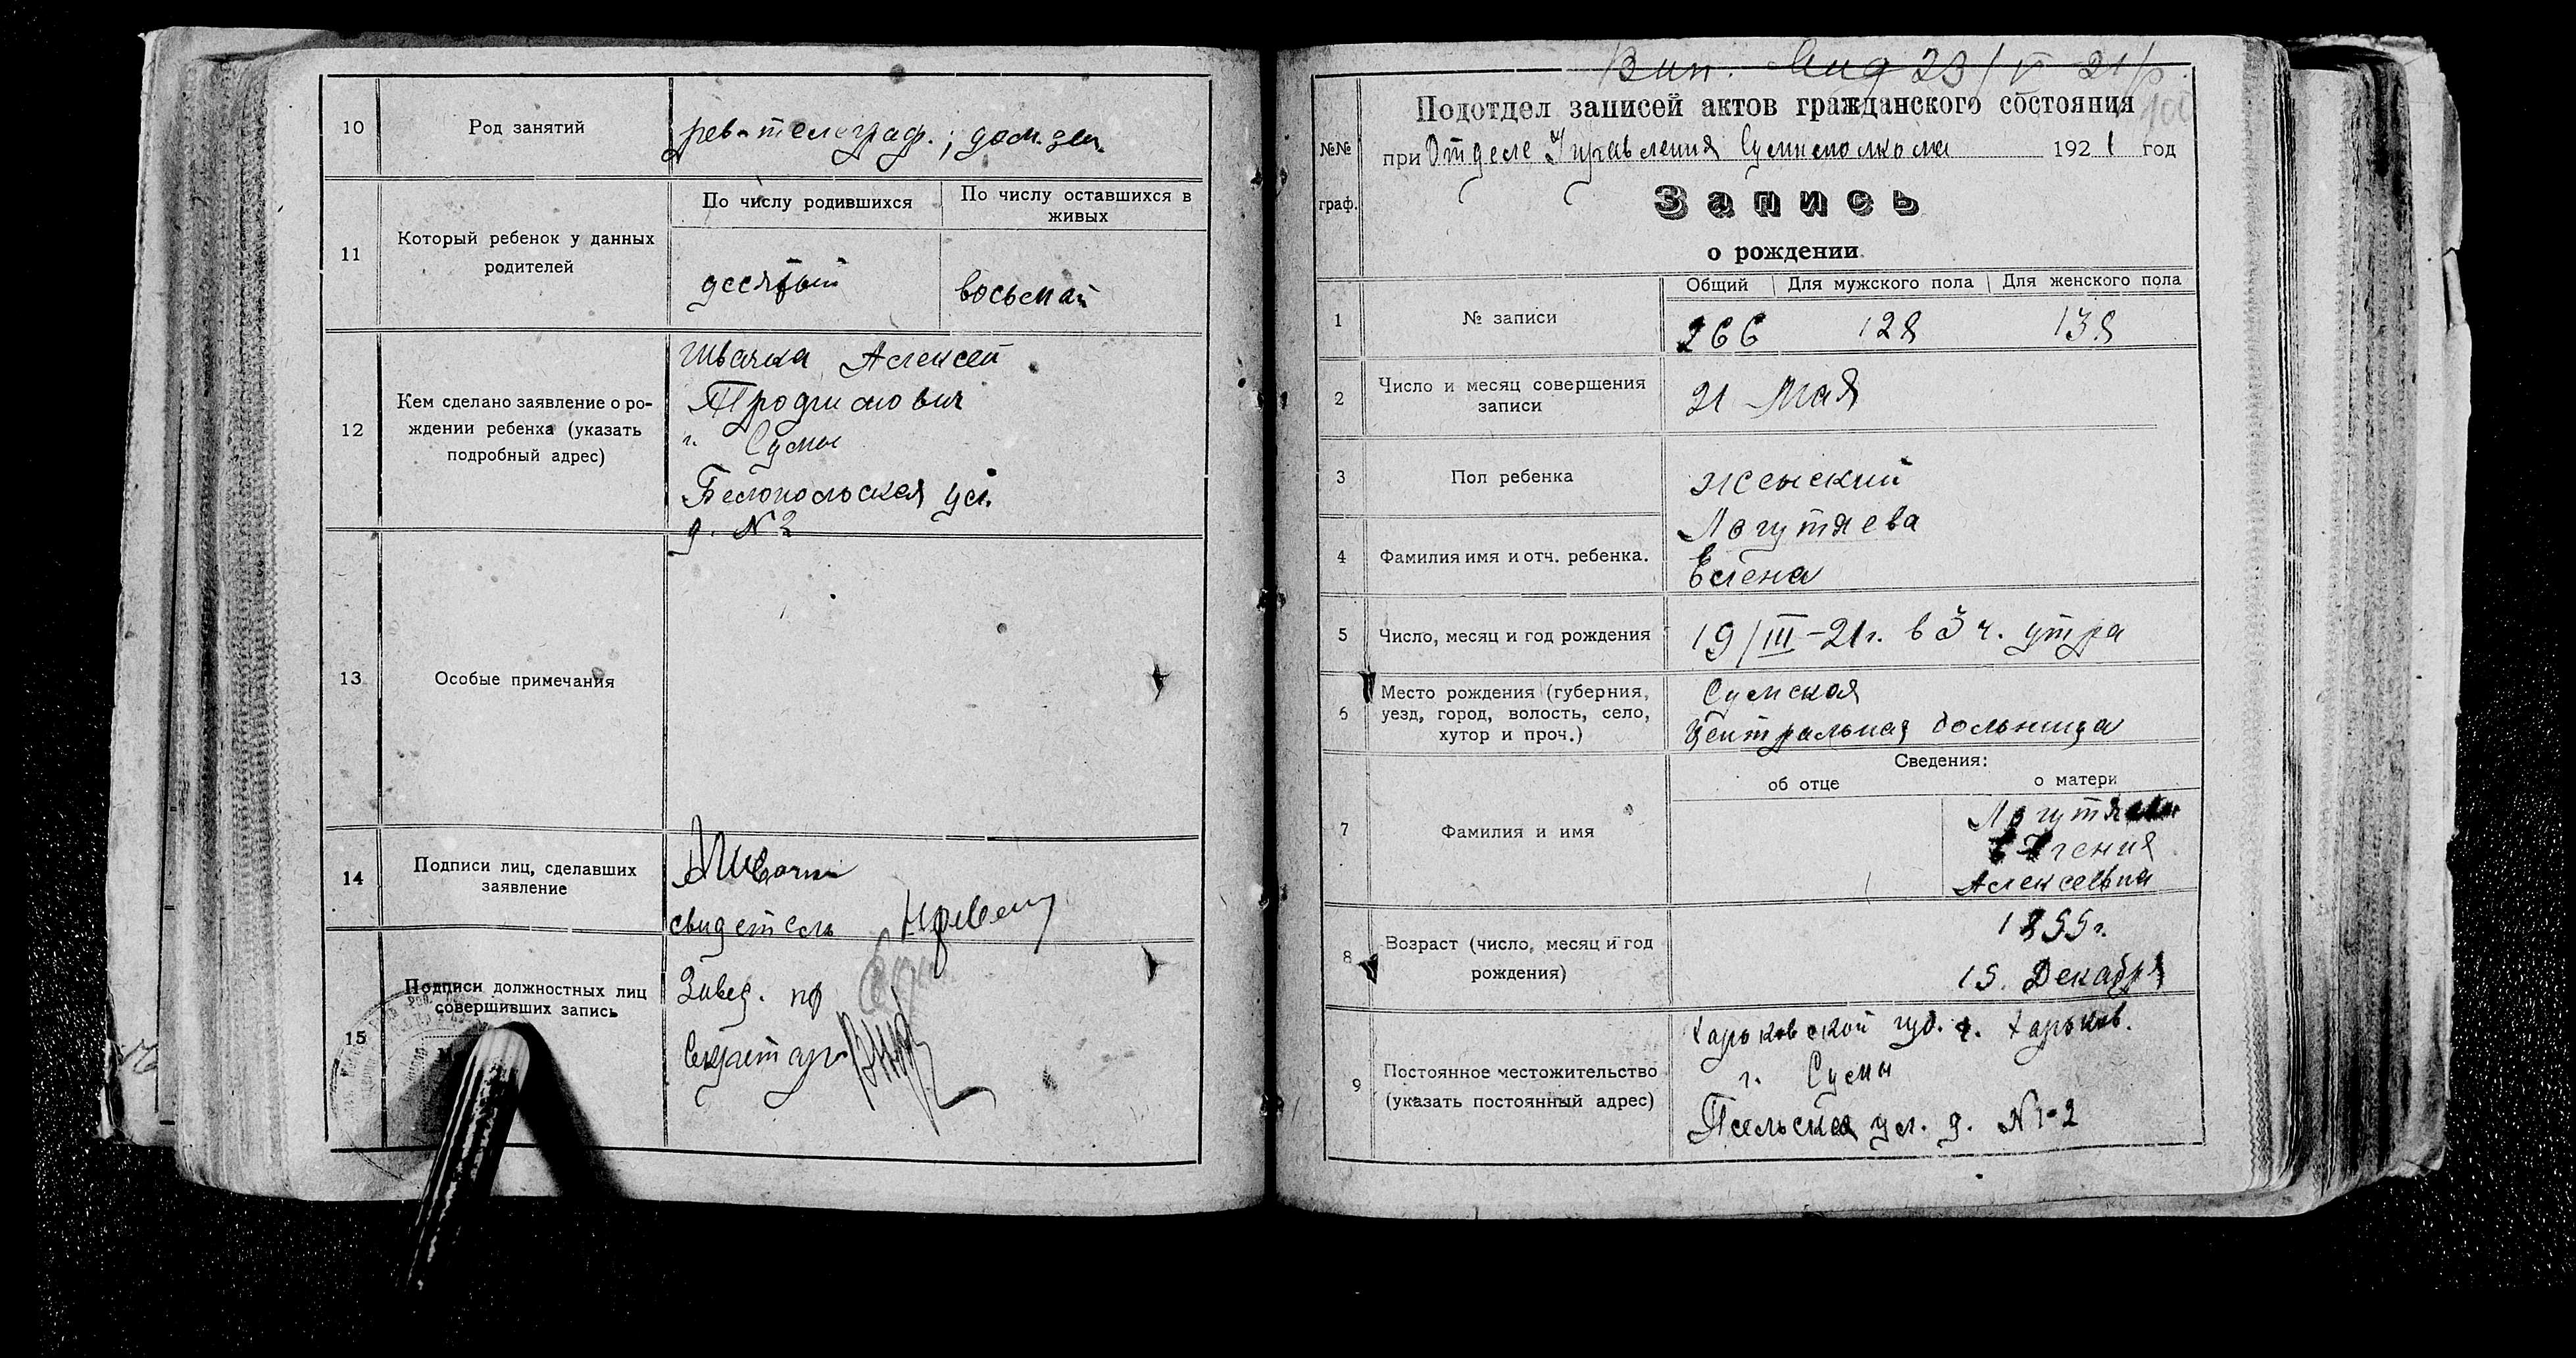 10
Род занятий
рев-телеграф.; дом. зан.
11
Который ребенок у данных
родителей
По числу родившихся
По числу оставшихся в
живых
десятый
восьмой
12
Кем сделано заявление о ро-
ждении ребенка (указать
подробный адрес)
Швачка Алексей
Трофимович
г. Сумы
Белопольская ул.
д. N 2
13
Особые примечания
14
Подписи лиц, сделавших
заявление
свидетель
15
Подписи должностных лиц
совершивших запись
Завед. п/о
Секретарь
23/V 21
Подотдел записей актов гражданского состояния
№№
граф.
при Отделе Управления Сумисполкома 1921 год
Запись
о рождении
1
№ записи
Общий Для мужского пола Для женского пола
266 128 138
2
Число и месяц совершения
записи
21 Мая
3
Пол ребенка
женский
4
Фамилия имя и отч. ребенка.
Логутяева
Елена
5
Число, месяц и год рождения
19/III-21г. в 3 ч. утра
6
Место рождения (губерния,
уезд, город, волость, село,
хутор и проч.)
Сумская
Центральная больница
Сведения:
об отце
о матери
7
Фамилия и имя
Евгения
Алексеевна
8
Возраст (число, месяц и год
рождения)
15. Декабря
9
Постоянное местожительство
(указать постоянный адрес)
Харьковской губ. г. Харьков.
г. Сумы
Псельская ул. д. N 1-2